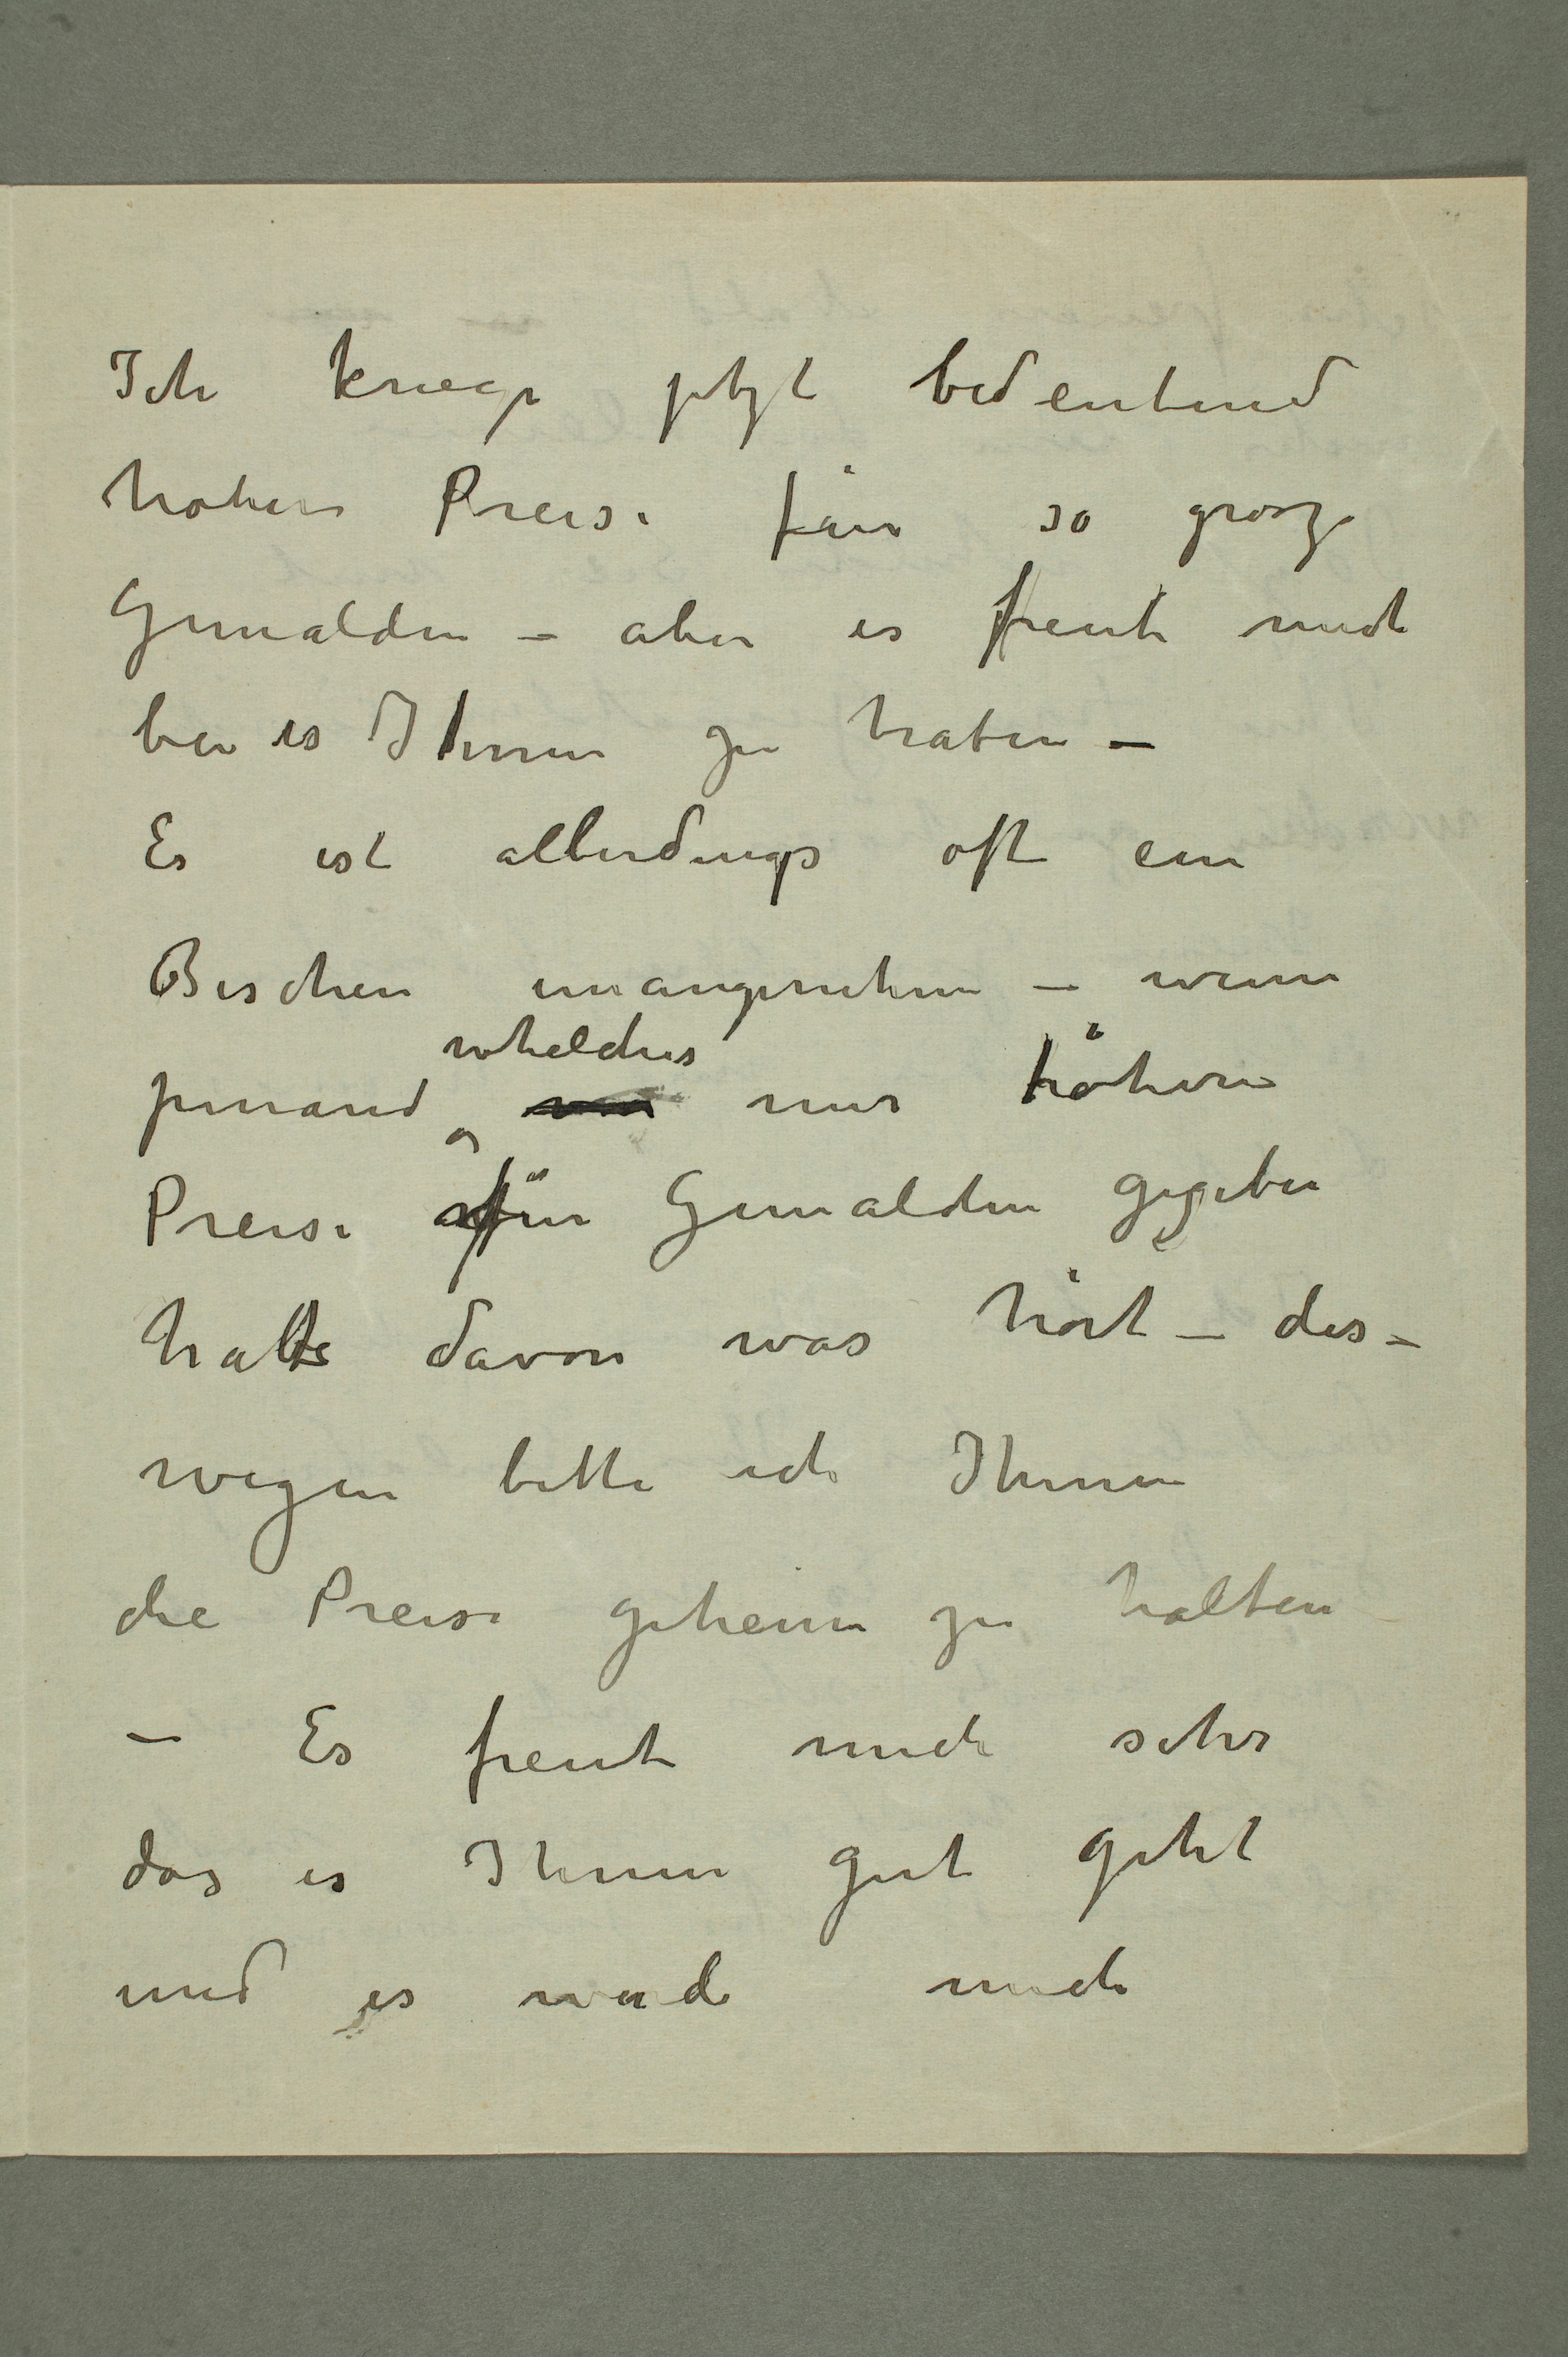 Ich kriege jetzt bedeutend
hohere Preise für so grosze
Gemälden – aber es freut mich
bei es Ihnen zu haben –
Es ist allerdings oft ein
Bischen unangenehm – wenn
jemand welches nur höhere
Preise für Gemälden gegeben
hatte davon was hört – des-
wegen bitte ich Ihnen
die Preise geheim zu halten
– Es freut mich sehr
das es Ihnen gut geht
und es wurde mich